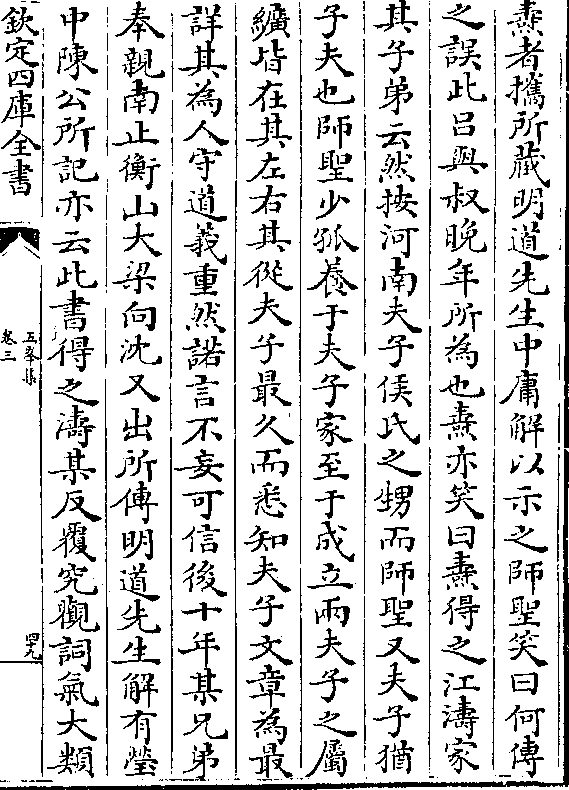 燾者攜所藏明道先生中庸解以示之師聖笑曰何傳
之誤此吕與叔晚年所為也燾亦笑曰燾得之江濤家
其子弟云然按河南夫子侯氏之甥而師聖又夫子猶
子夫也師聖少孤養于夫子家至于成立兩夫子之屬
纊皆在其左右其從夫子最久而悉知夫子文章為最
詳其為人守道義重然諾言不妄可信後十年某兄弟
奉親南止衡山大梁向沈又出所傳明道先生解有瑩
中陳公所記亦云此書得之濤某反覆究觀詞氣大類
欽定四庫全書
五峯集
卷三
四九